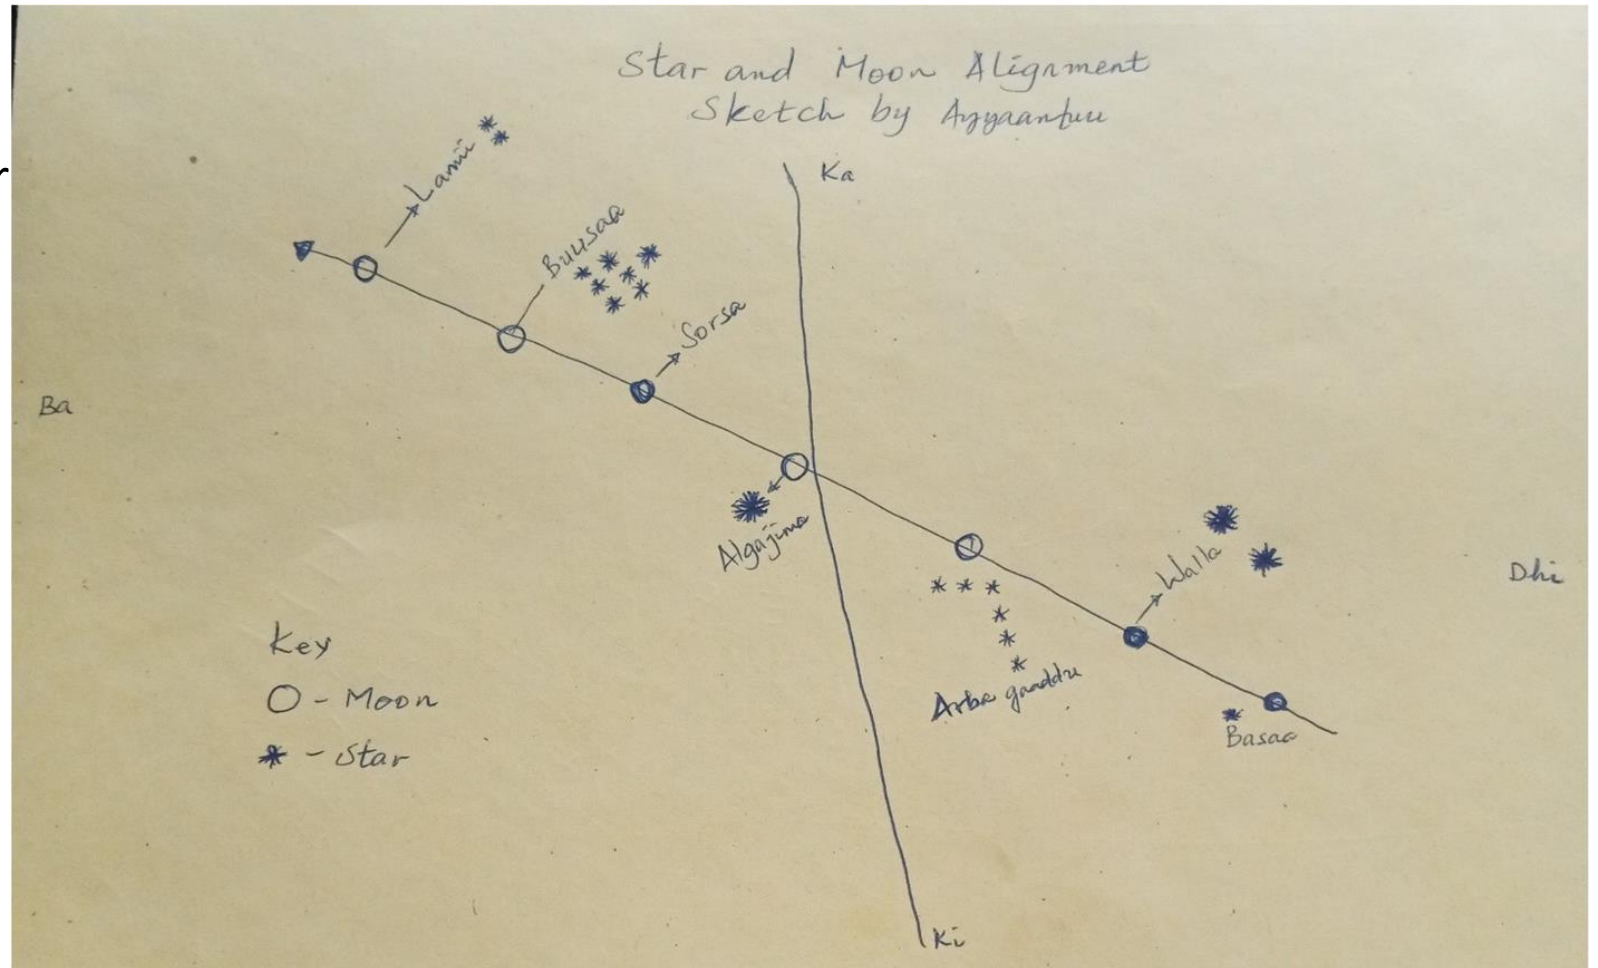 Star and Moon Alignment
Sketch by Ayyaantuu
Ka
Lamii
Buusaa
Sorsa
Ba
Algajima
Walla
Dhi
Arba gaaddu
Basaa
Key
O - Moon
* - Star
Ki